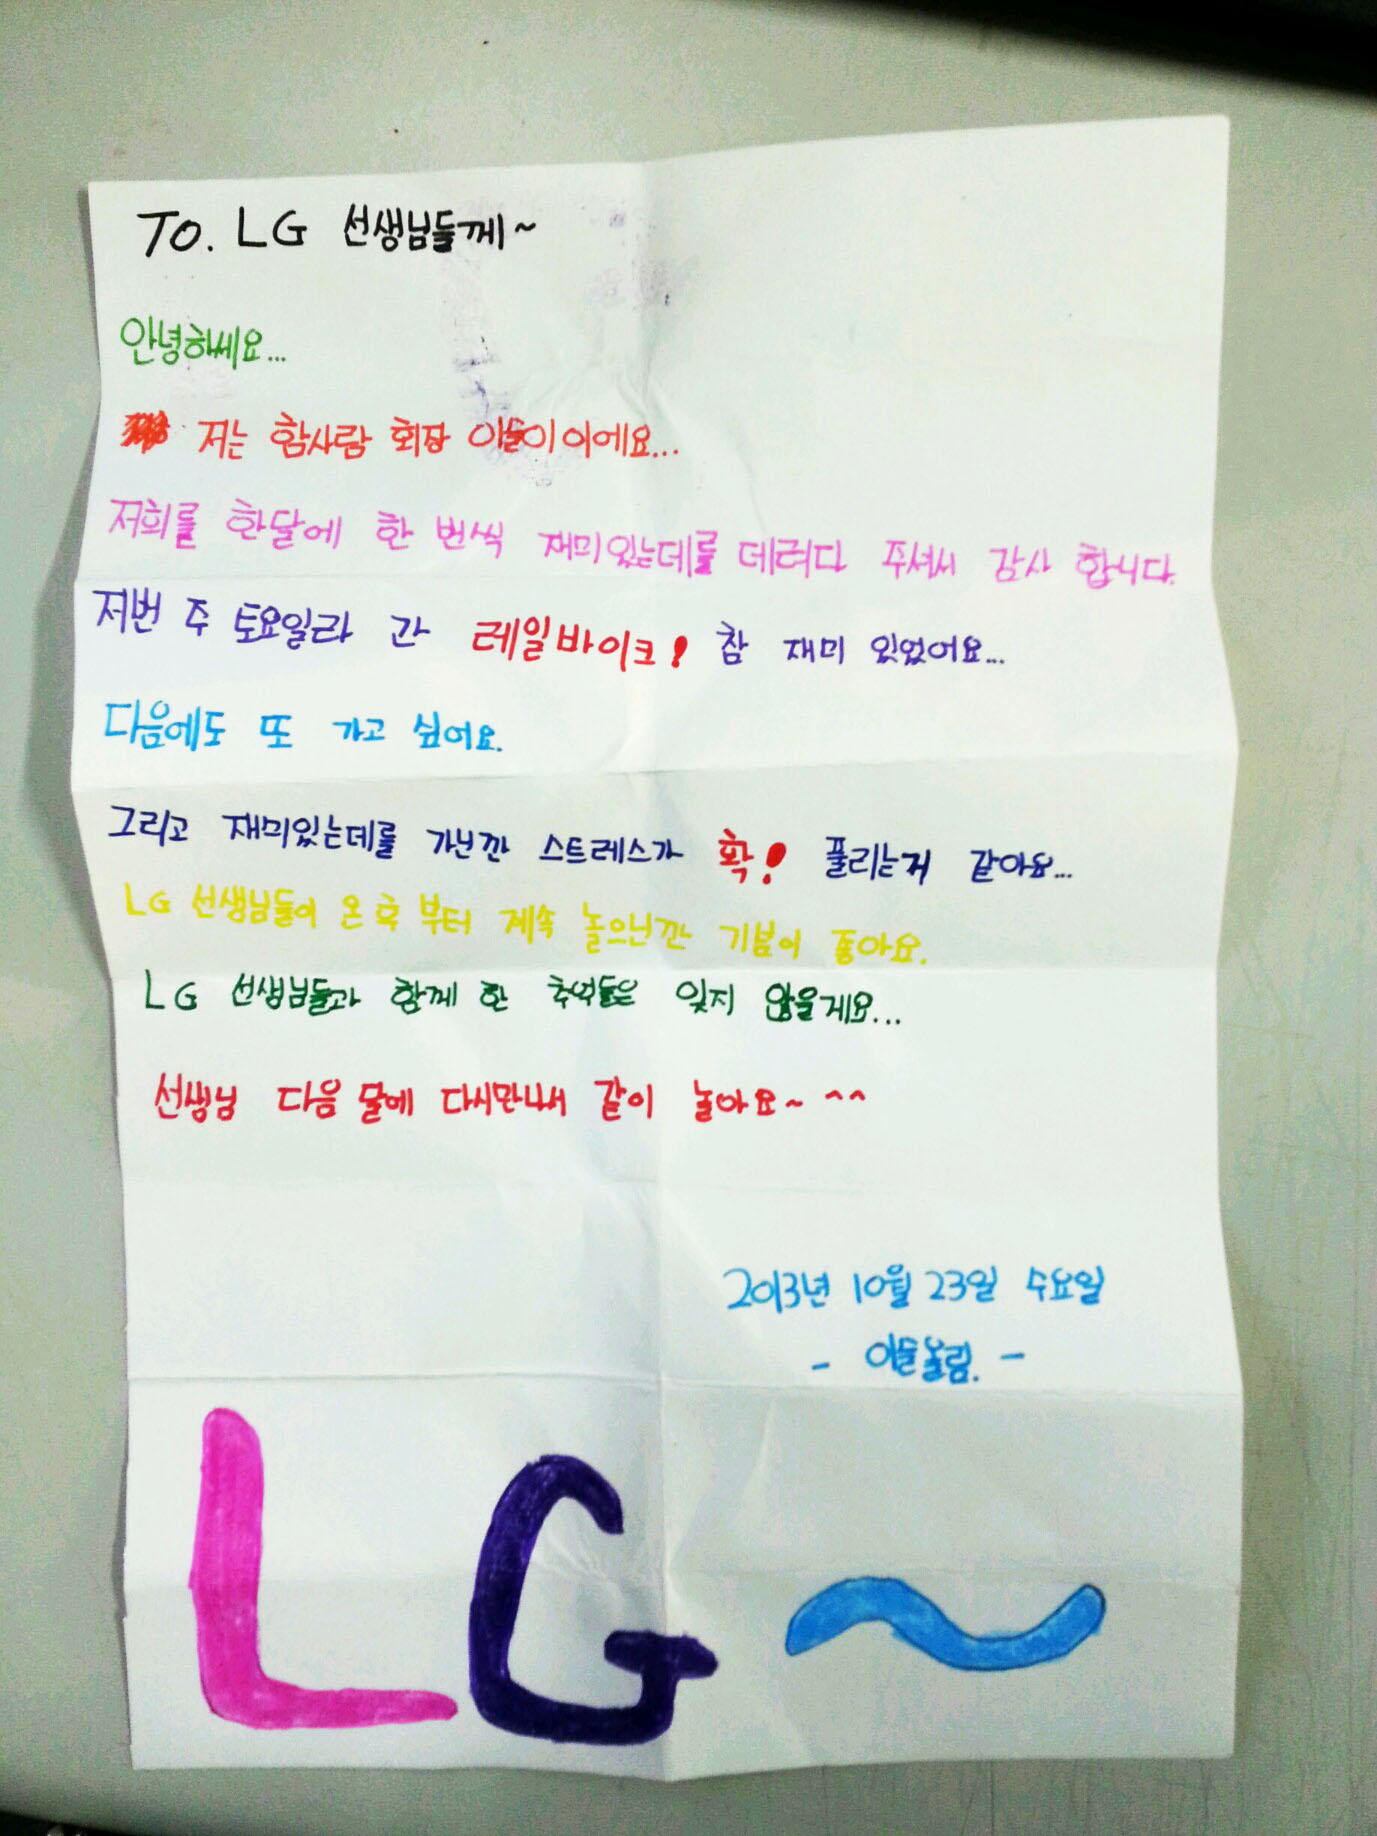 To. LG 선생님들께~
안녕하세요...
저는 함사람 회장 이슬이이에요...
저희를 한달에 한 번씩 재미있는데를 데려다 주셔서 감사 합니다.
저번 주 토요일라 간 레일바이크! 참 재미 있었어요...
다음에도 또 가고 싶어요.
그리고 재미있는데를 가닌깐 스트레스가 확! 풀리는거 같아요...
LG 선생님들이 온 후 부터 계속 놀으닌깐 기분이 좋아요.
LG 선생님들과 함께 한 추억들은 잊지 않을게요...
선생님 다음 달에 다시만나서 같이 놀아요~ ^^
2013년 10월 23일 수요일
- 이슬올림. -
LG~